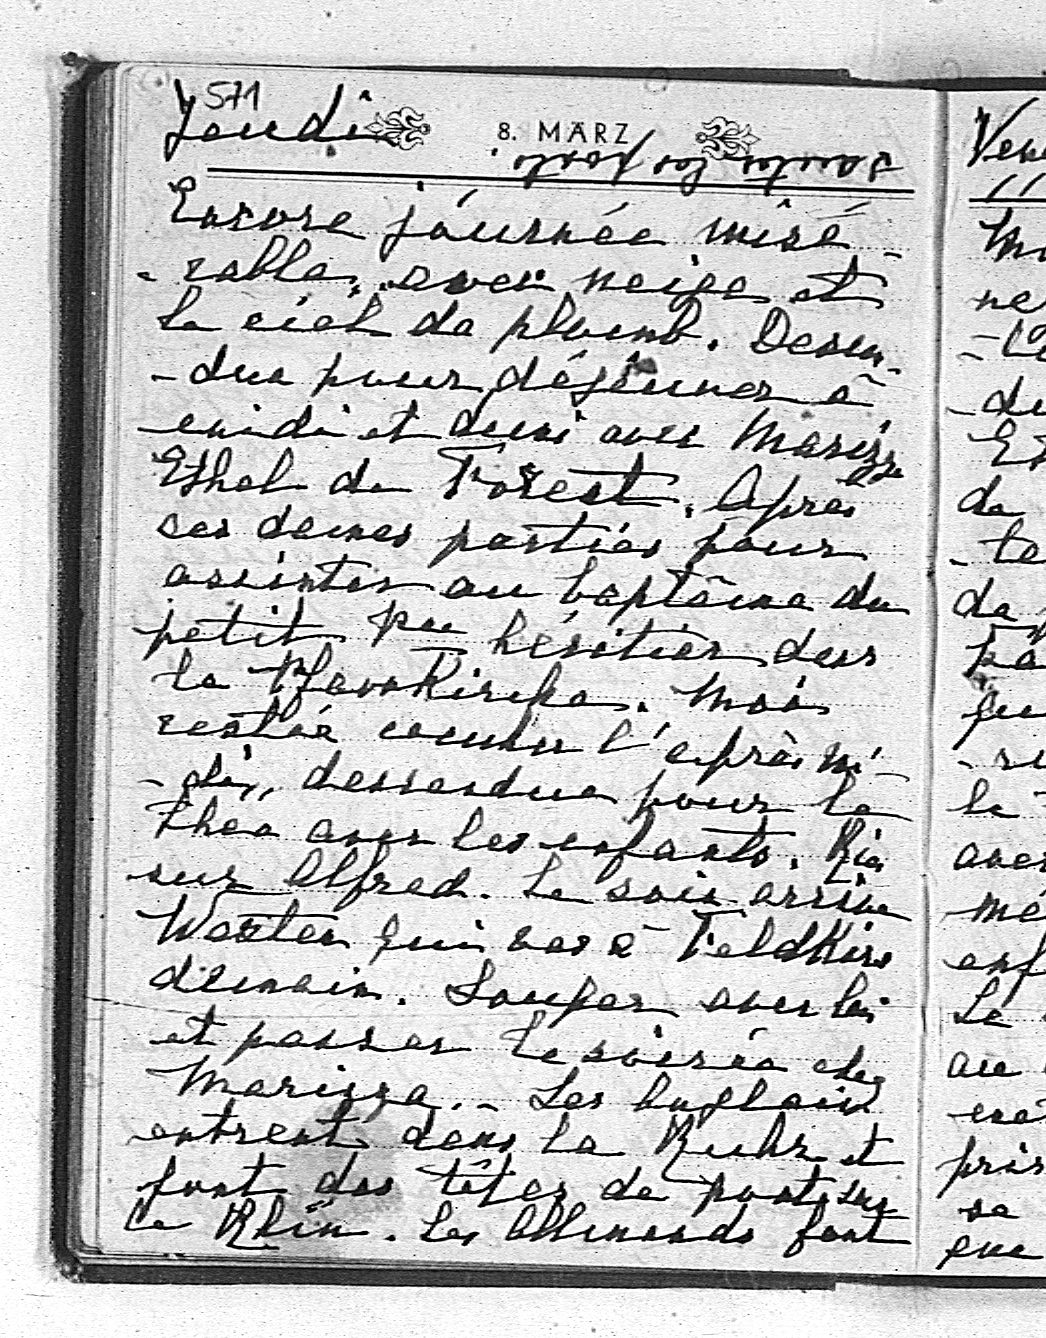 571
Jeudi
8. MÄRZ
Encore journée misé
-rable, avec neige et
le ciel de plomb. Descen
-due pour déjeuner à
midi et demi avec Marizza
Ethel de Forest. Après
ces dames parties pour
assister au baptême du
petit héritier dans
la Pfarrkirche. Moi
restée couchée l'après mi-
-di, descendue pour le
thea avec les enfants. Rien
sur Alfred. Le soir arrive
qui vas à Feldkirch
demain. Souper avec lui
et passer la soirée chez
Marizza. - Les Anglais
entrent dans la Ruhr et
font des têtes de ponts sur
le Rhin. Les Allemands font
Mo
ne
-du
Et
de
-te
de
le
avec
enf
Le
au
pris
se
que